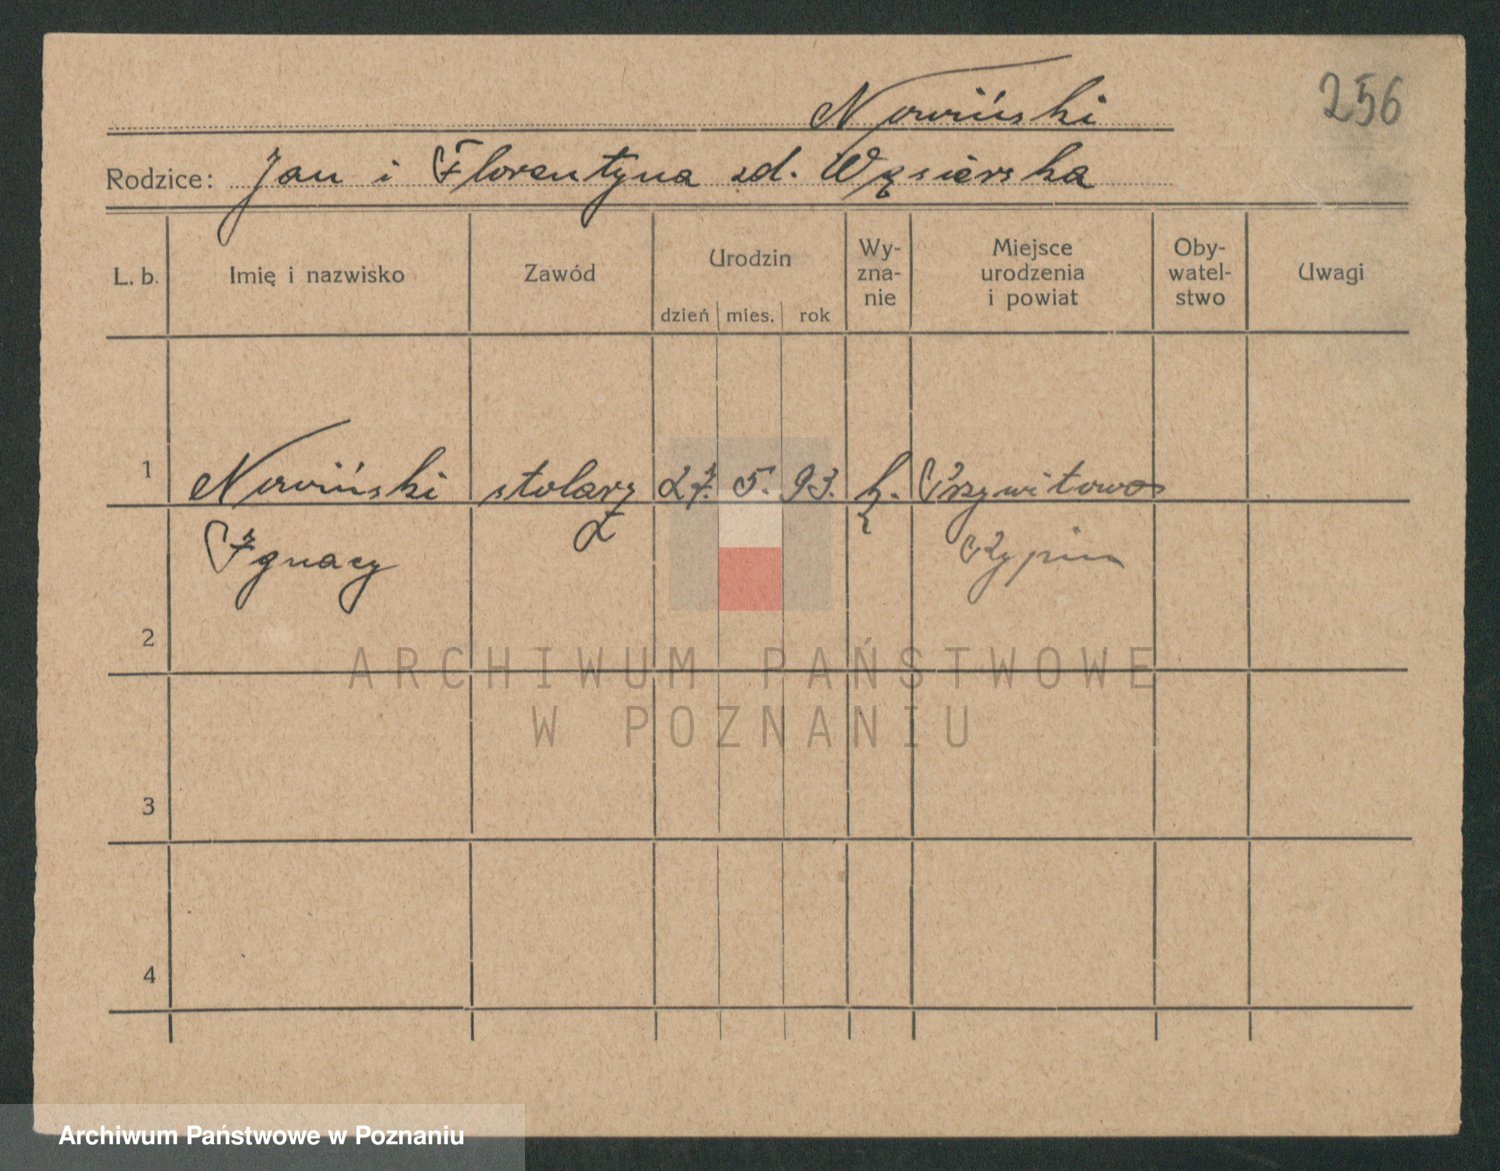 256
Nowiński
Rodzice: Jan i Florentyna zd. Wąsierska
L. b. Imię i nazwisko Zawód Urodzin dzień mies. rok Wy-zna-nie Miejsce urodzenia i powiat Oby-watel-stwo Uwagi
1 Nowiński stolarz 27. 5. 93. k. Przywitowo
Ignacy Rypin
2
ARCHIWUM PAŃSTWOWE
W POZNANIU
3
4
Archiwum Państwowe w Poznaniu